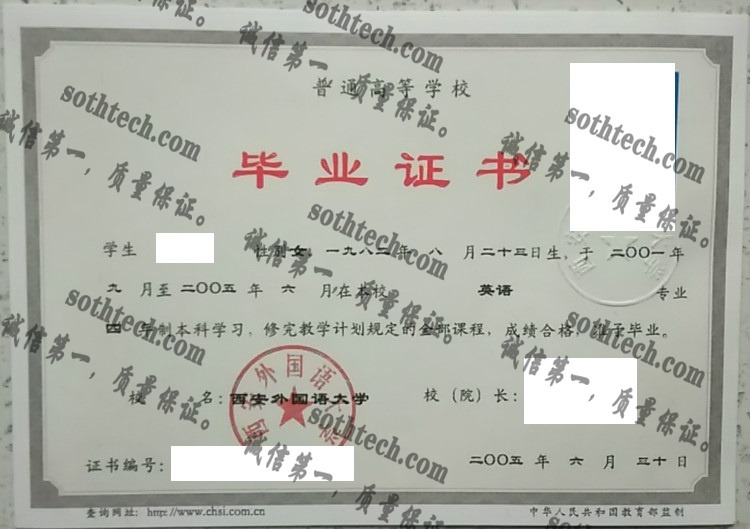 普通高等学校
毕业证书
学生 性别 女, 一九八二年 八 月二十三日生, 于 二〇〇一年
九 月至 二〇〇五 年 六 月在本校 英语 专业
四 年制本科学习, 修完教学计划规定的全部课程, 成绩合格, 准予毕业。
校 名: 西安外国语大学 校(院)长:
证书编号: 二〇〇五 年 六 月 三十日
查询网址: http://www.chsi.com.cn 中华人民共和国教育部监制
西安外国语
sothtech.com
诚信第一,质量保证。
sothtech.com
诚信第一,质量保证。
sothtech.com
诚信第一,质量保证。
sothtech.com
诚信第一,质量保证。
sothtech.com
诚信第一,质量保证。
sothtech.com
诚信第一,质量保证。
sothtech.com
诚信第一,质量保证。